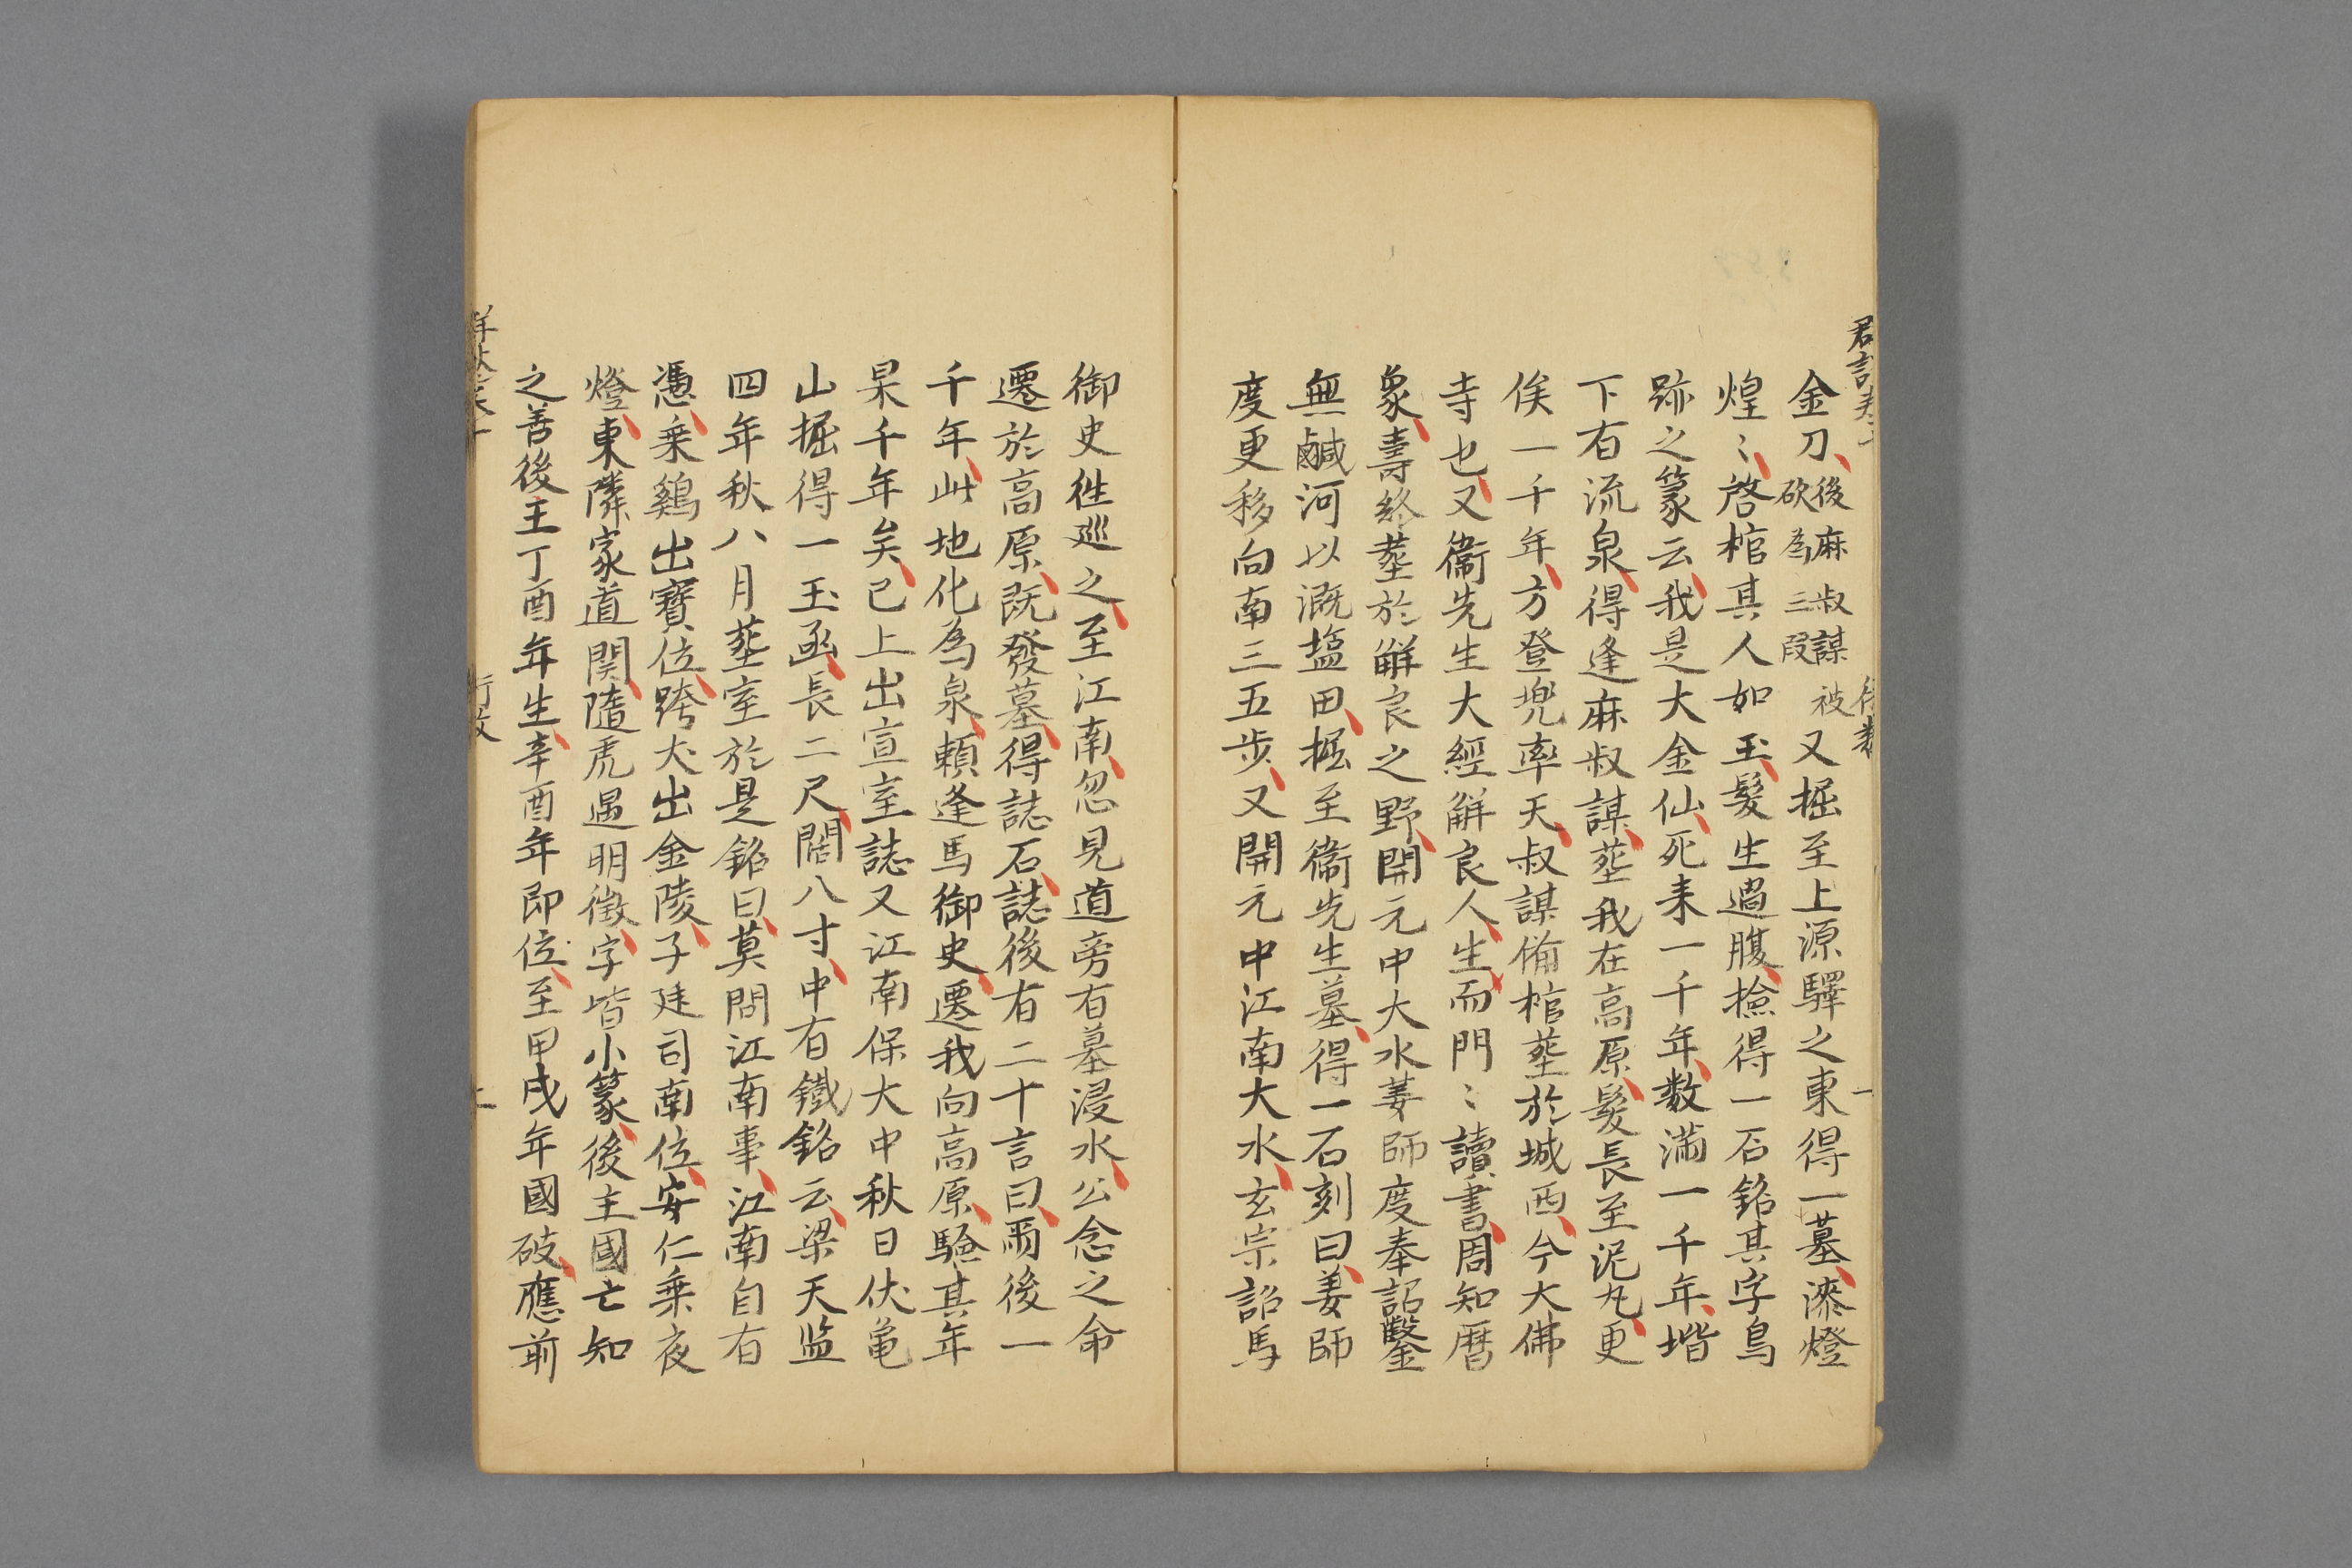 金刀後麻叔謀被砍為三段又掘至上源驛之東得一墓漆燈
煌〻啓棺其人如玉髮生過腹撿得一石銘其字鳥
跡之篆云我是大金仙死来一千年数滿一千年揩
下有流泉得逢麻叔謀塟我在高原髮長至泥丸更
俟一千年方登兜率天叔謀俻棺塟於城西今大佛
寺也又衞先生大經解良人生而門〻讀書周知暦
象壽終塟於解良之野開元中大水姜師度奉詔鑿
無鹹河以溉塩田掘至衞先生墓得一石刻曰姜師
度更移向南三五步又開元中江南大水玄宗詔馬
御史徃廵之至江南忽見道旁有墓浸水公念之命
遷於高原既發墓得誌石誌後有二十言曰爾後一
千年此地化為泉頼逢馬御史遷我向高原驗其年
杲千年矣已上出宣室誌又江南保大中秋日伏龜
山掘得一玉函長二尺闊八寸中有鐵銘云梁天监
四年秋八月塟室於是銘曰莫問江南事江南自有
憑乗鷄出寶位跨犬出金陵子建司南位安仁乗夜
燈東隣家道闋隨虎遇明徵字皆小篆後主國亡知
之善後王丁酉年生辛酉年即位至甲戌年國破應前